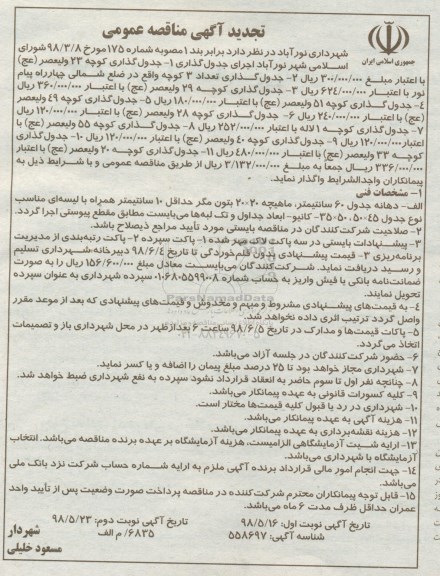 تجدید آگهی مناقصه عمومی
جمهوری اسلامی ایران
شهرداری نورآباد در نظر دارد برابر بند ۱ مصوبه شماره ۱۷۵ مورخ ۹۸/۳/۸ شورای
اسلامی شهر نورآباد اجرای جدول‌گذاری ۱- جدول‌گذاری کوچه ۲۳ ولیعصر (عج)
با اعتبار مبلغ ۳۰۰/۰۰۰/۰۰۰ ریال ۲- جدول‌گذاری تعداد ۳ کوچه واقع در ضلع شمالی چهارراه پیام
نور با اعتبار ۶۲۴/۰۰۰/۰۰۰ ریال ۳- جدول‌گذاری کوچه ۲۹ ولیعصر (عج) با اعتبار ۳۶۰/۰۰۰/۰۰۰ ریال
۴- جدول‌گذاری کوچه ۵۱ ولیعصر (عج) با اعتبار ۱۸۰/۰۰۰/۰۰۰ ریال ۵- جدول‌گذاری کوچه ۴۹ ولیعصر
(عج) با اعتبار ۲۴۰/۰۰۰/۰۰۰ ریال ۶- جدول‌گذاری کوچه ۲۸ ولیعصر (عج) با اعتبار ۱۲۰/۰۰۰/۰۰۰ ریال
۷- جدول‌گذاری کوچه ۱ لاله با اعتبار ۲۵۲/۰۰۰/۰۰۰ ریال ۸- جدول‌گذاری کوچه ۵۵ ولیعصر (عج) با
اعتبار ۱۲۰/۰۰۰/۰۰۰ ریال ۹- جدول‌گذاری کوچه ۴۰ ولیعصر (عج) با اعتبار ۱۲۰/۰۰۰/۰۰۰ ریال ۱۰- جدول‌گذاری
کوچه ۳۳ ولیعصر (عج) با اعتبار ۴۸۰/۰۰۰/۰۰۰ ریال ۱۱- جدول‌گذاری کوچه ۲۰ ولیعصر (عج) با اعتبار
۳۳۶/۰۰۰/۰۰۰ ریال جمعا به مبلغ ۳/۱۳۲/۰۰۰/۰۰۰ ریال از طریق مناقصه عمومی و با شرایط ذیل به
پیمانکاران واجدالشرایط واگذار نماید.
۱- مشخصات فنی
الف- دهانه جدول ۶۰ سانتیمتر، ماهیچه ۲۰*۲۰ بتون مگر حداقل ۱۰ سانتیمتر همراه با لیسه‌ای مناسب
نوع جدول ۴۵*۵۰*۵۰*۳۵- کانیو- ابعاد جداول و تک لبه‌ها می‌بایست مطابق مقطع پیوستی اجرا گردد.
۲- صلاحیت شرکت‌کنندگان در مناقصه بایستی مورد تأیید مراجع ذیصلاح باشد.
۳- پیشنهادات بایستی در سه پاکت لاک و مهر شده ۱- پاکت سپرده ۲- پاکت رتبه‌بندی از مدیریت
برنامه‌ریزی ۳- قیمت پیشنهادی بدون قلم‌خوردگی تا تاریخ ۹۸/۶/۴ دبیرخانه شهرداری تسلیم
و رسید دریافت نماید. شرکت‌کنندگان می‌بایست معادل مبلغ ۱۵۶/۶۰۰/۰۰۰ ریال را به صورت
ضمانت‌نامه بانکی یا فیش واریز به حساب شماره ۰۱۰۶۸۰۵۵۹۹۰۰۸ سپرده شهرداری به عنوان سپرده
تحویل نمایند.
۴- به قیمت‌های پیشنهادی مشروط و مبهم و مخدوش و قیمت‌های پیشنهادی که بعد از موعد مقرر
واصل گردد ترتیب اثری داده نخواهد شد.
۵- پاکات قیمت‌ها و مدارک در تاریخ ۹۸/۶/۵ ساعت ۶ بعدازظهر در محل شهرداری باز و تصمیمات
اتخاذ می‌گردد.
۶- حضور شرکت‌کنندگان در جلسه آزاد می‌باشد.
۷- شهرداری مجاز خواهد بود تا ۲۵ درصد مبلغ پیمان را اضافه و یا کسر نماید.
۸- چنانچه نفر اول تا سوم حاضر به انعقاد قرارداد نشود سپرده به نفع شهرداری ضبط خواهد شد.
۹- کلیه کسورات قانونی به عهده پیمانکار می‌باشد.
۱۰- شهرداری در رد یا قبول کلیه قیمت‌ها مختار است.
۱۱- هزینه آگهی به عهده پیمانکار می‌باشد.
۱۲- هزینه نقشه‌برداری به عهده پیمانکار می‌باشد.
۱۳- ارایه شیت آزمایشگاهی الزامیست، هزینه آزمایشگاه بر عهده برنده مناقصه می‌باشد. انتخاب
آزمایشگاه با شهرداری می‌باشد.
۱۴- جهت انجام امور مالی قرارداد برنده آگهی ملزم به ارایه شماره حساب شرکت نزد بانک ملی
می‌باشد.
۱۵- قابل توجه پیمانکاران محترم شرکت‌کننده در مناقصه پرداخت صورت وضعیت پس از تأیید واحد
عمران حداقل ظرف مدت ۶ ماه می‌باشد.
تاریخ آگهی نوبت اول: ۹۸/۵/۱۶ تاریخ آگهی نوبت دوم: ۹۸/۵/۲۳
شناسه آگهی: ۵۵۸۶۹۷ ۶۸۳۵/م الف
شهردار
مسعود خلیلی